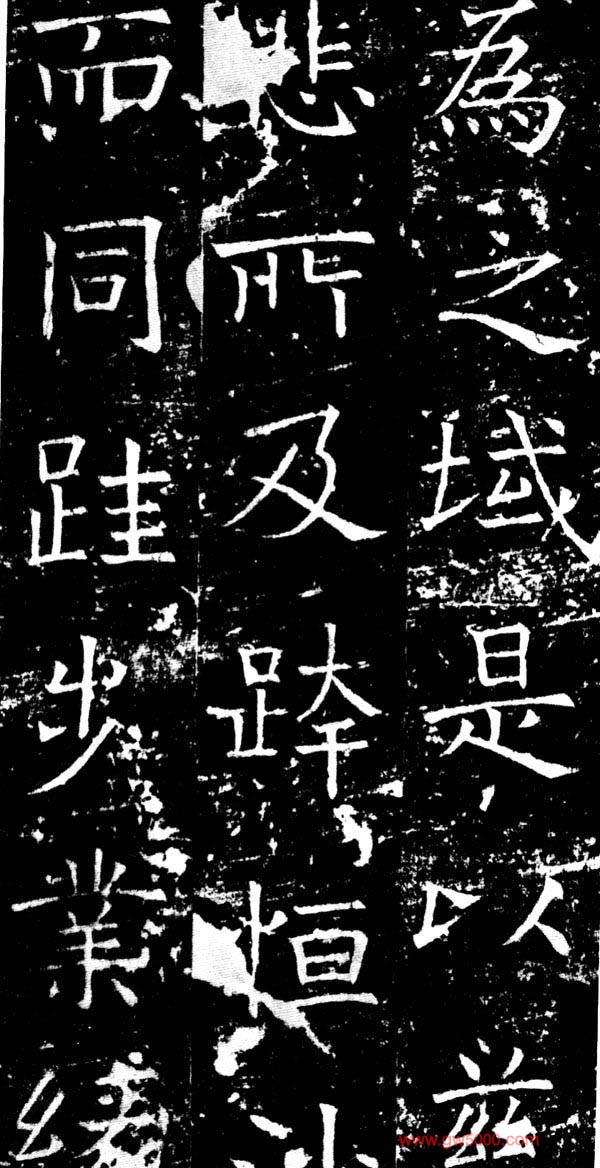 為之域是以慈
悲所及跨恒
而同跬步業緣
www.gw5000.com